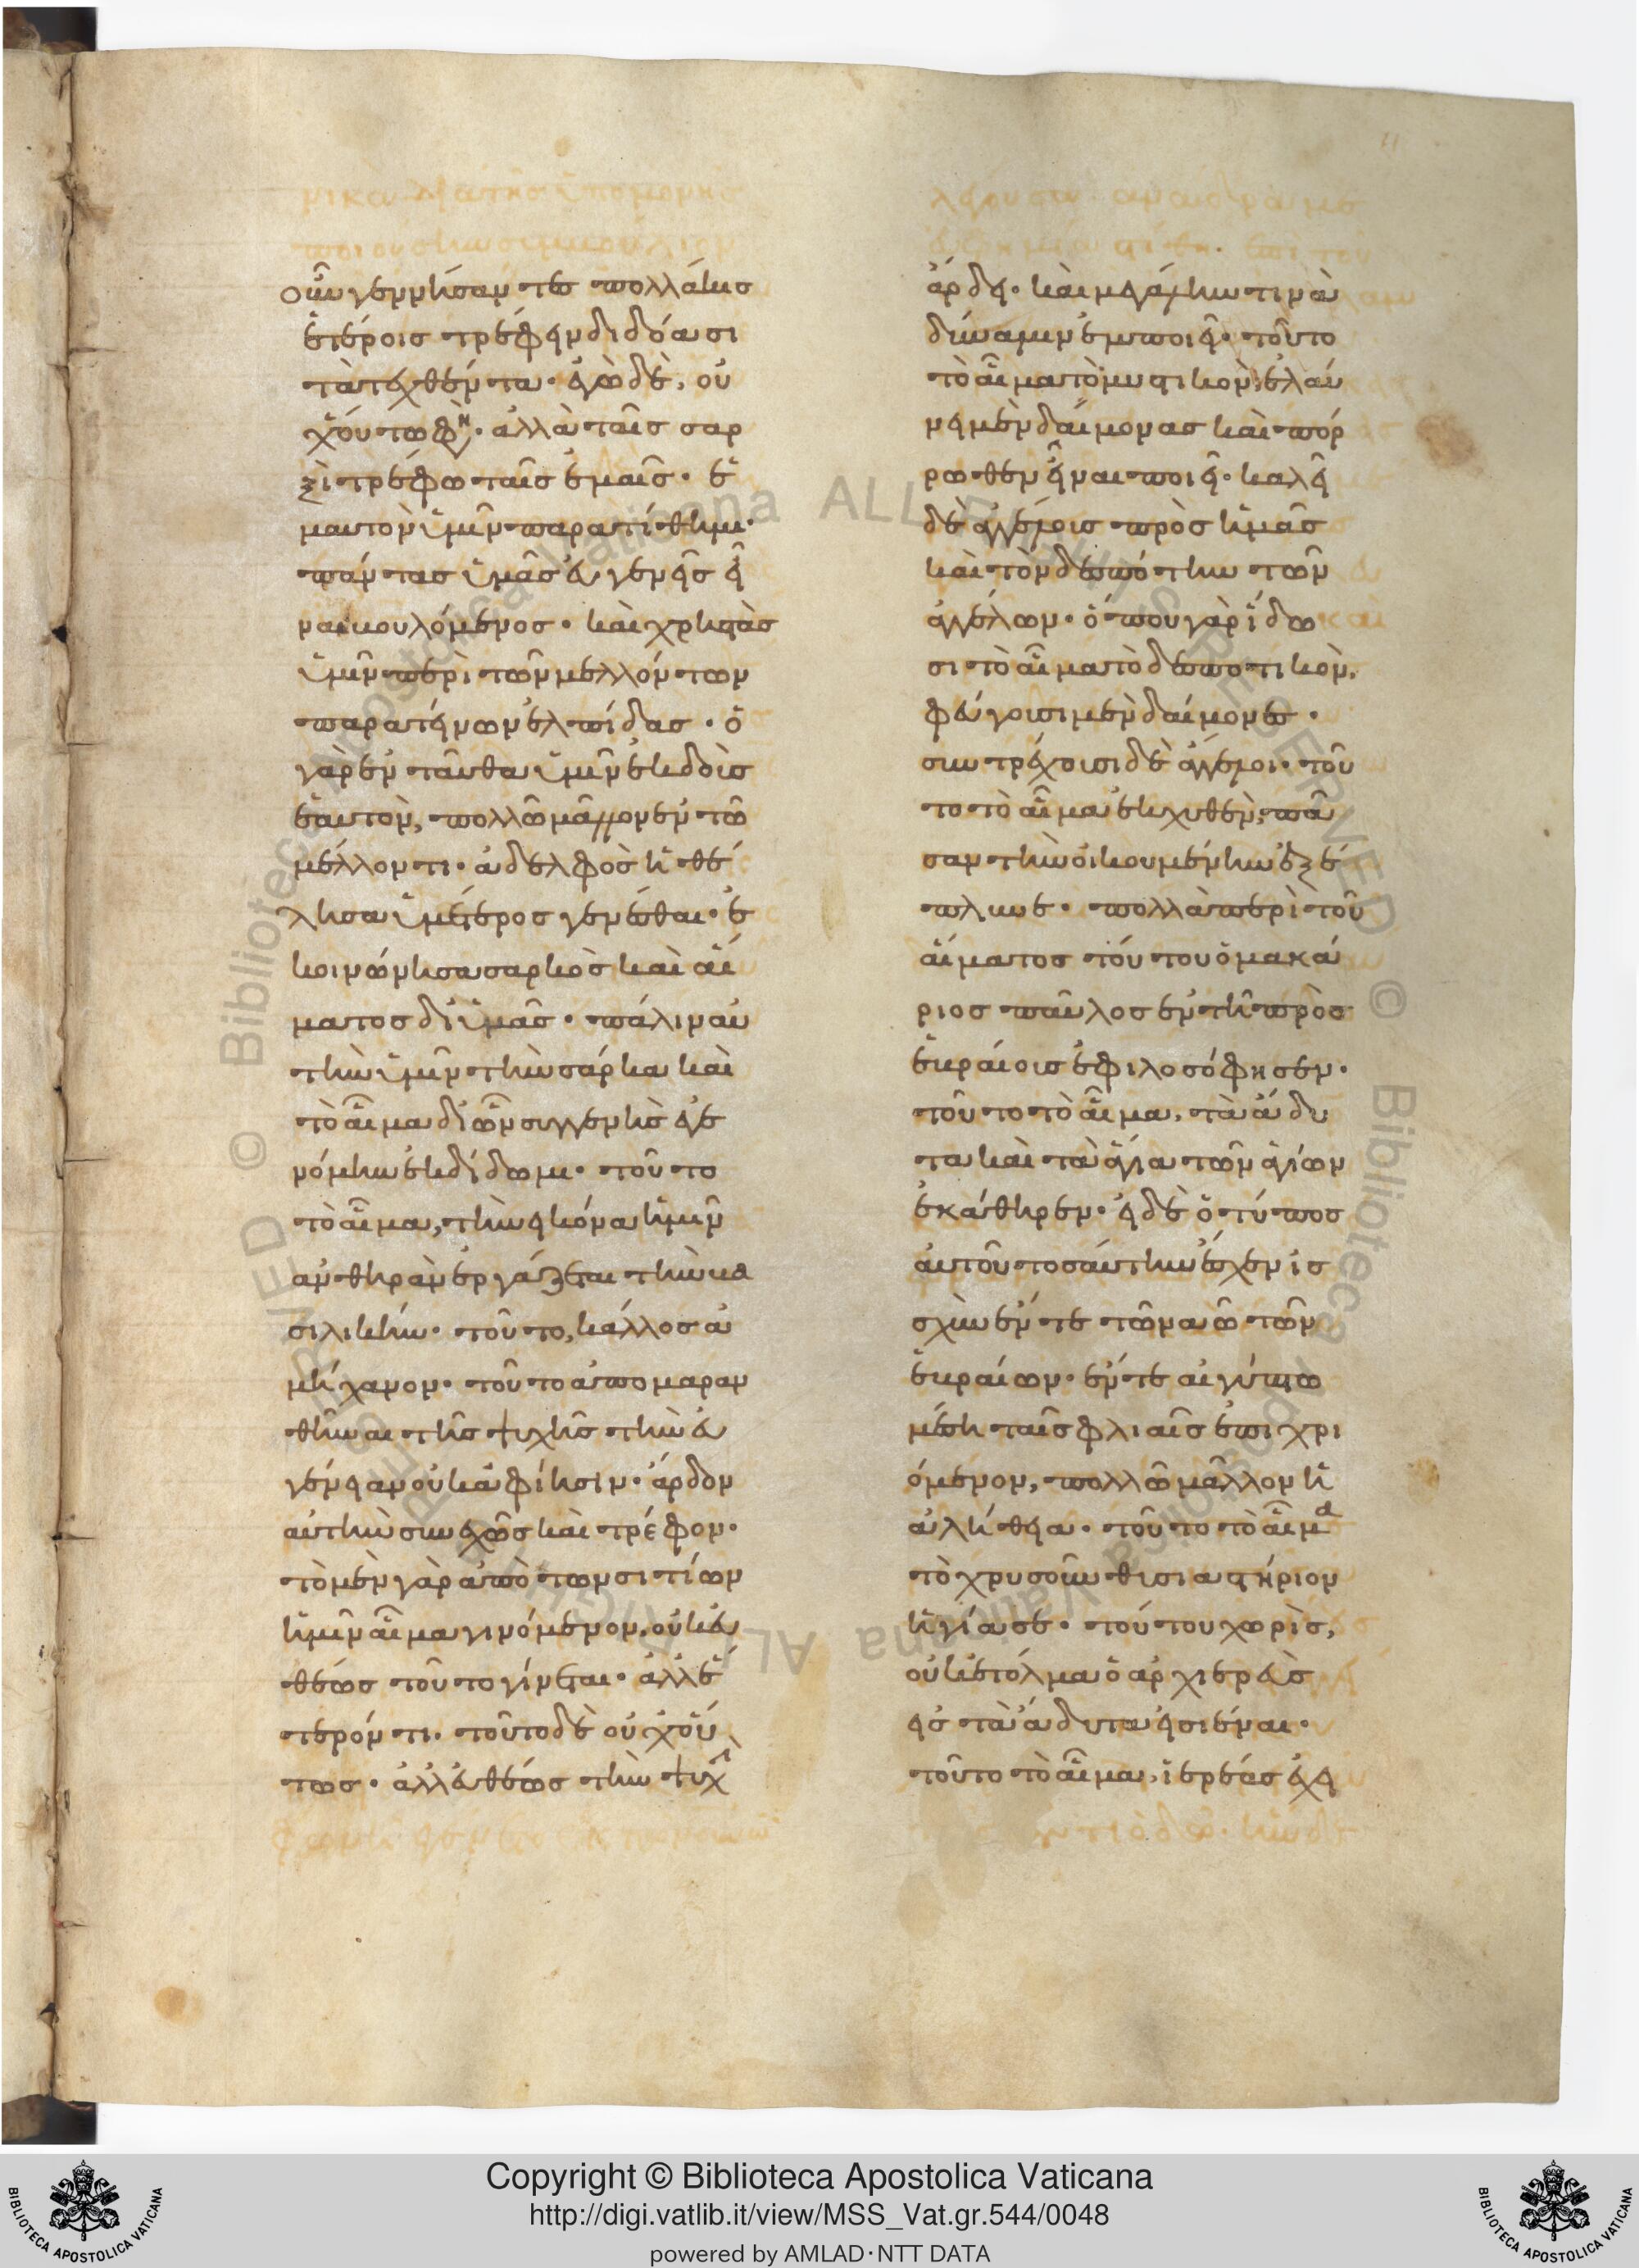 οὖν γεννήσαντες πολλάκις
ἑτέροις τρέφειν διδόασι
τὰ τεχθέντα· ἐγὼ δὲ, οὐ
χ' οὕτω φὴν· ἀλλὰ ταῖς σαρ
ξὶ τρέφω ταῖς ἐμαῖς· ἐ
μαυτὸν ὑμῖν παρατίθημι·
πάντας ὑμᾶς εὐγενεῖς εἶ
ναι βουλόμενος· καὶ χρηστὰς
ὑμῖν περὶ τῶν μελλόντων
παρατείνων ἐλπίδας· ὁ
γὰρ ἐνταῦθα ὑμῖν ἐκδοὺς
ἑαυτὸν, πολλῶ μᾶλλον ἐν τῶ
μέλλοντι· ἀδελφὸς ἠθέ
λησα ὑμέτερος γενέσθαι· ἐ
κοινώνησα σαρκὸς καὶ αἵ
ματος δι' ὑμᾶς· πάλιν αὐ
τὴν ὑμῖν τὴν σάρκα καὶ
τὸ αἷμα δι' ὧν συγγενὴς ἐγε
νόμην ἐκδίδωμι· τοῦτο
τὸ αἷμα, τὴν εἰκόνα ἡμῖν
ἀνθηρὰν ἐργάζεται τὴν βα
σιλικήν· τοῦτο, κάλλος ἀ
μήχανον· τοῦτο ἀπομαραν
θῆναι τῆς ψυχῆς τὴν εὐ
γένειαν οὐκ ἀφίησιν· ἄρδον
αὐτὴν συνεχῶς καὶ τρέφον·
τὸ μὲν γὰρ ἀπὸ τῶν σιτίων
ἡμῖν αἷμα γινόμενον, οὐκ εὐ
θέως τοῦτο γίνεται· ἀλλ' ἕ
τερόν τι. τοῦτο δὲ οὐχ' οὕ
τως· ἀλλ' εὐθέως τὴν ψυχὴν
ἄρδει· καὶ μεγάλην τινὰ
δύναμιν ἐμποιεῖ· τοῦτο
τὸ αἷμα τὸ μυστικὸν, ἐλαύ
νει μὲν δαίμονας καὶ πόρ
ρωθεν εἶναι ποιεῖ· καλεῖ
δὲ ἀγγέλους πρὸς ἡμᾶς
καὶ τὸν δεσπότην τῶν
ἀγγέλων· ὅπου γὰρ ἴδω
σι τὸ αἷμα τὸ δεσποτικὸν,
φεύγουσι μὲν δαίμονες·
συντρέχουσι δὲ ἄγγελοι· τοῦ
το τὸ αἷμα ἐκχυθὲν, πᾶ
σαν τὴν οἰκουμένην ἐξέ
πλυνε· πολλὰ περὶ τοῦ
αἵματος τούτου ὁ μακά
ριος παῦλος ἐν τῆ πρὸς
ἑβραίους ἐφιλοσόφησεν·
τοῦτο τὸ αἷμα, τὰ ἄδυ
τα καὶ τὰ ἅγια τῶν ἁγίων
ἐκάθηρεν· εἰ δὲ ὁ τύπος
αὐτοῦ τοσαύτην ἔσχεν ἰσ
σχὺν ἔν τε τῶ ναῶ τῶν
ἑβραίων· ἔν τε αἰγύπτω
μέση ταῖς φλιαῖς ἐπιχρι
όμενον, πολλῶ μᾶλλον ἡ
ἀλήθεια· τοῦτο τὸ αἷμα
τὸ χρυσοῦν θυσιαστήριον
ἡγίασε· τούτου χωρὶς,
οὐκ ἐτόλμα ὁ ἀρχιερεὺς
εἰς τὰ ἄδυτα εἰσιέναι·
τοῦτο τὸ αἷμα, ἱερέας ἐχει
Copyright © Biblioteca Apostolica Vaticana
http://digi.vatlib.it/view/MSS_Vat.gr.544/0048
powered by AMLAD·NTT DATA